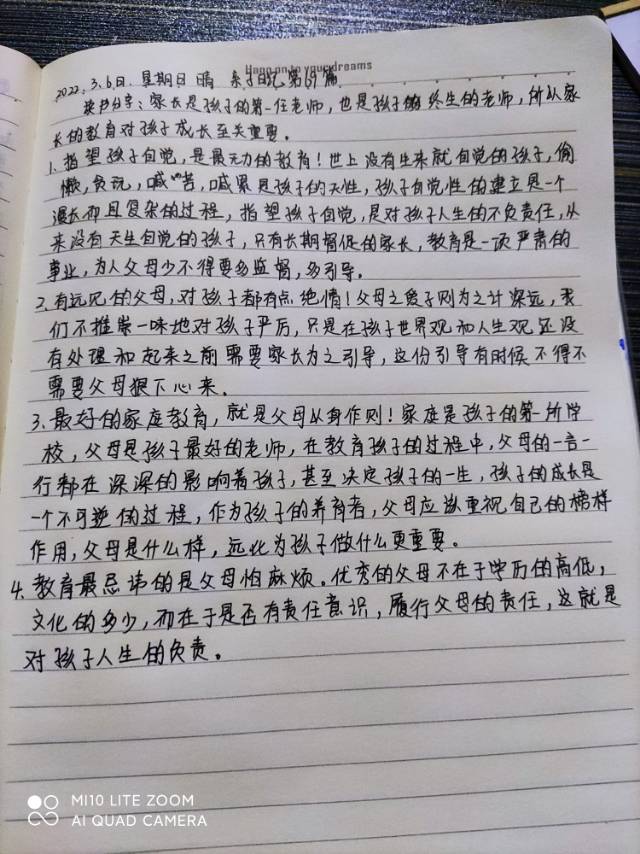 Hang on to your dreams
2022.3.6日.星期日 晴 亲子日记第69篇
读书分享:家长是孩子的第一任老师,也是孩子的终生的老师,所以家
长的教育对孩子成长至关重要。
1、指望孩子自觉,是最无力的教育!世上没有生来就自觉的孩子,偷
懒,贪玩,喊苦,喊累是孩子的天性,孩子自觉性的建立是一个
漫长而且复杂的过程,指望孩子自觉,是对孩子人生的不负责任,从
来没有天生自觉的孩子,只有长期督促的家长,教育是一项严肃的
事业,为人父母少不得要多监督,多引导。
2、有远见的父母,对孩子都有点绝情!父母之爱子则为之计深远,我
们不推崇一味地对孩子严厉,只是在孩子世界观和人生观还没
有处理和起来之前需要家长为之引导,这份引导有时候不得不
需要父母狠下心来。
3、最好的家庭教育,就是父母以身作则!家庭是孩子的第一所学
校,父母是孩子最好的老师,在教育孩子的过程中,父母的一言一
行都在深深的影响着孩子,甚至决定孩子的一生,孩子的成长是
一个不可逆的过程,作为孩子的养育者,父母应当重视自己的榜样
作用,父母是什么样,远比为孩子做什么更重要。
4、教育最忌讳的是父母怕麻烦。优秀的父母不在于学历的高低,
文化的多少,而在于是否有责任意识,履行父母的责任,这就是
对孩子人生的负责。
MI10 LITE ZOOM
AI QUAD CAMERA